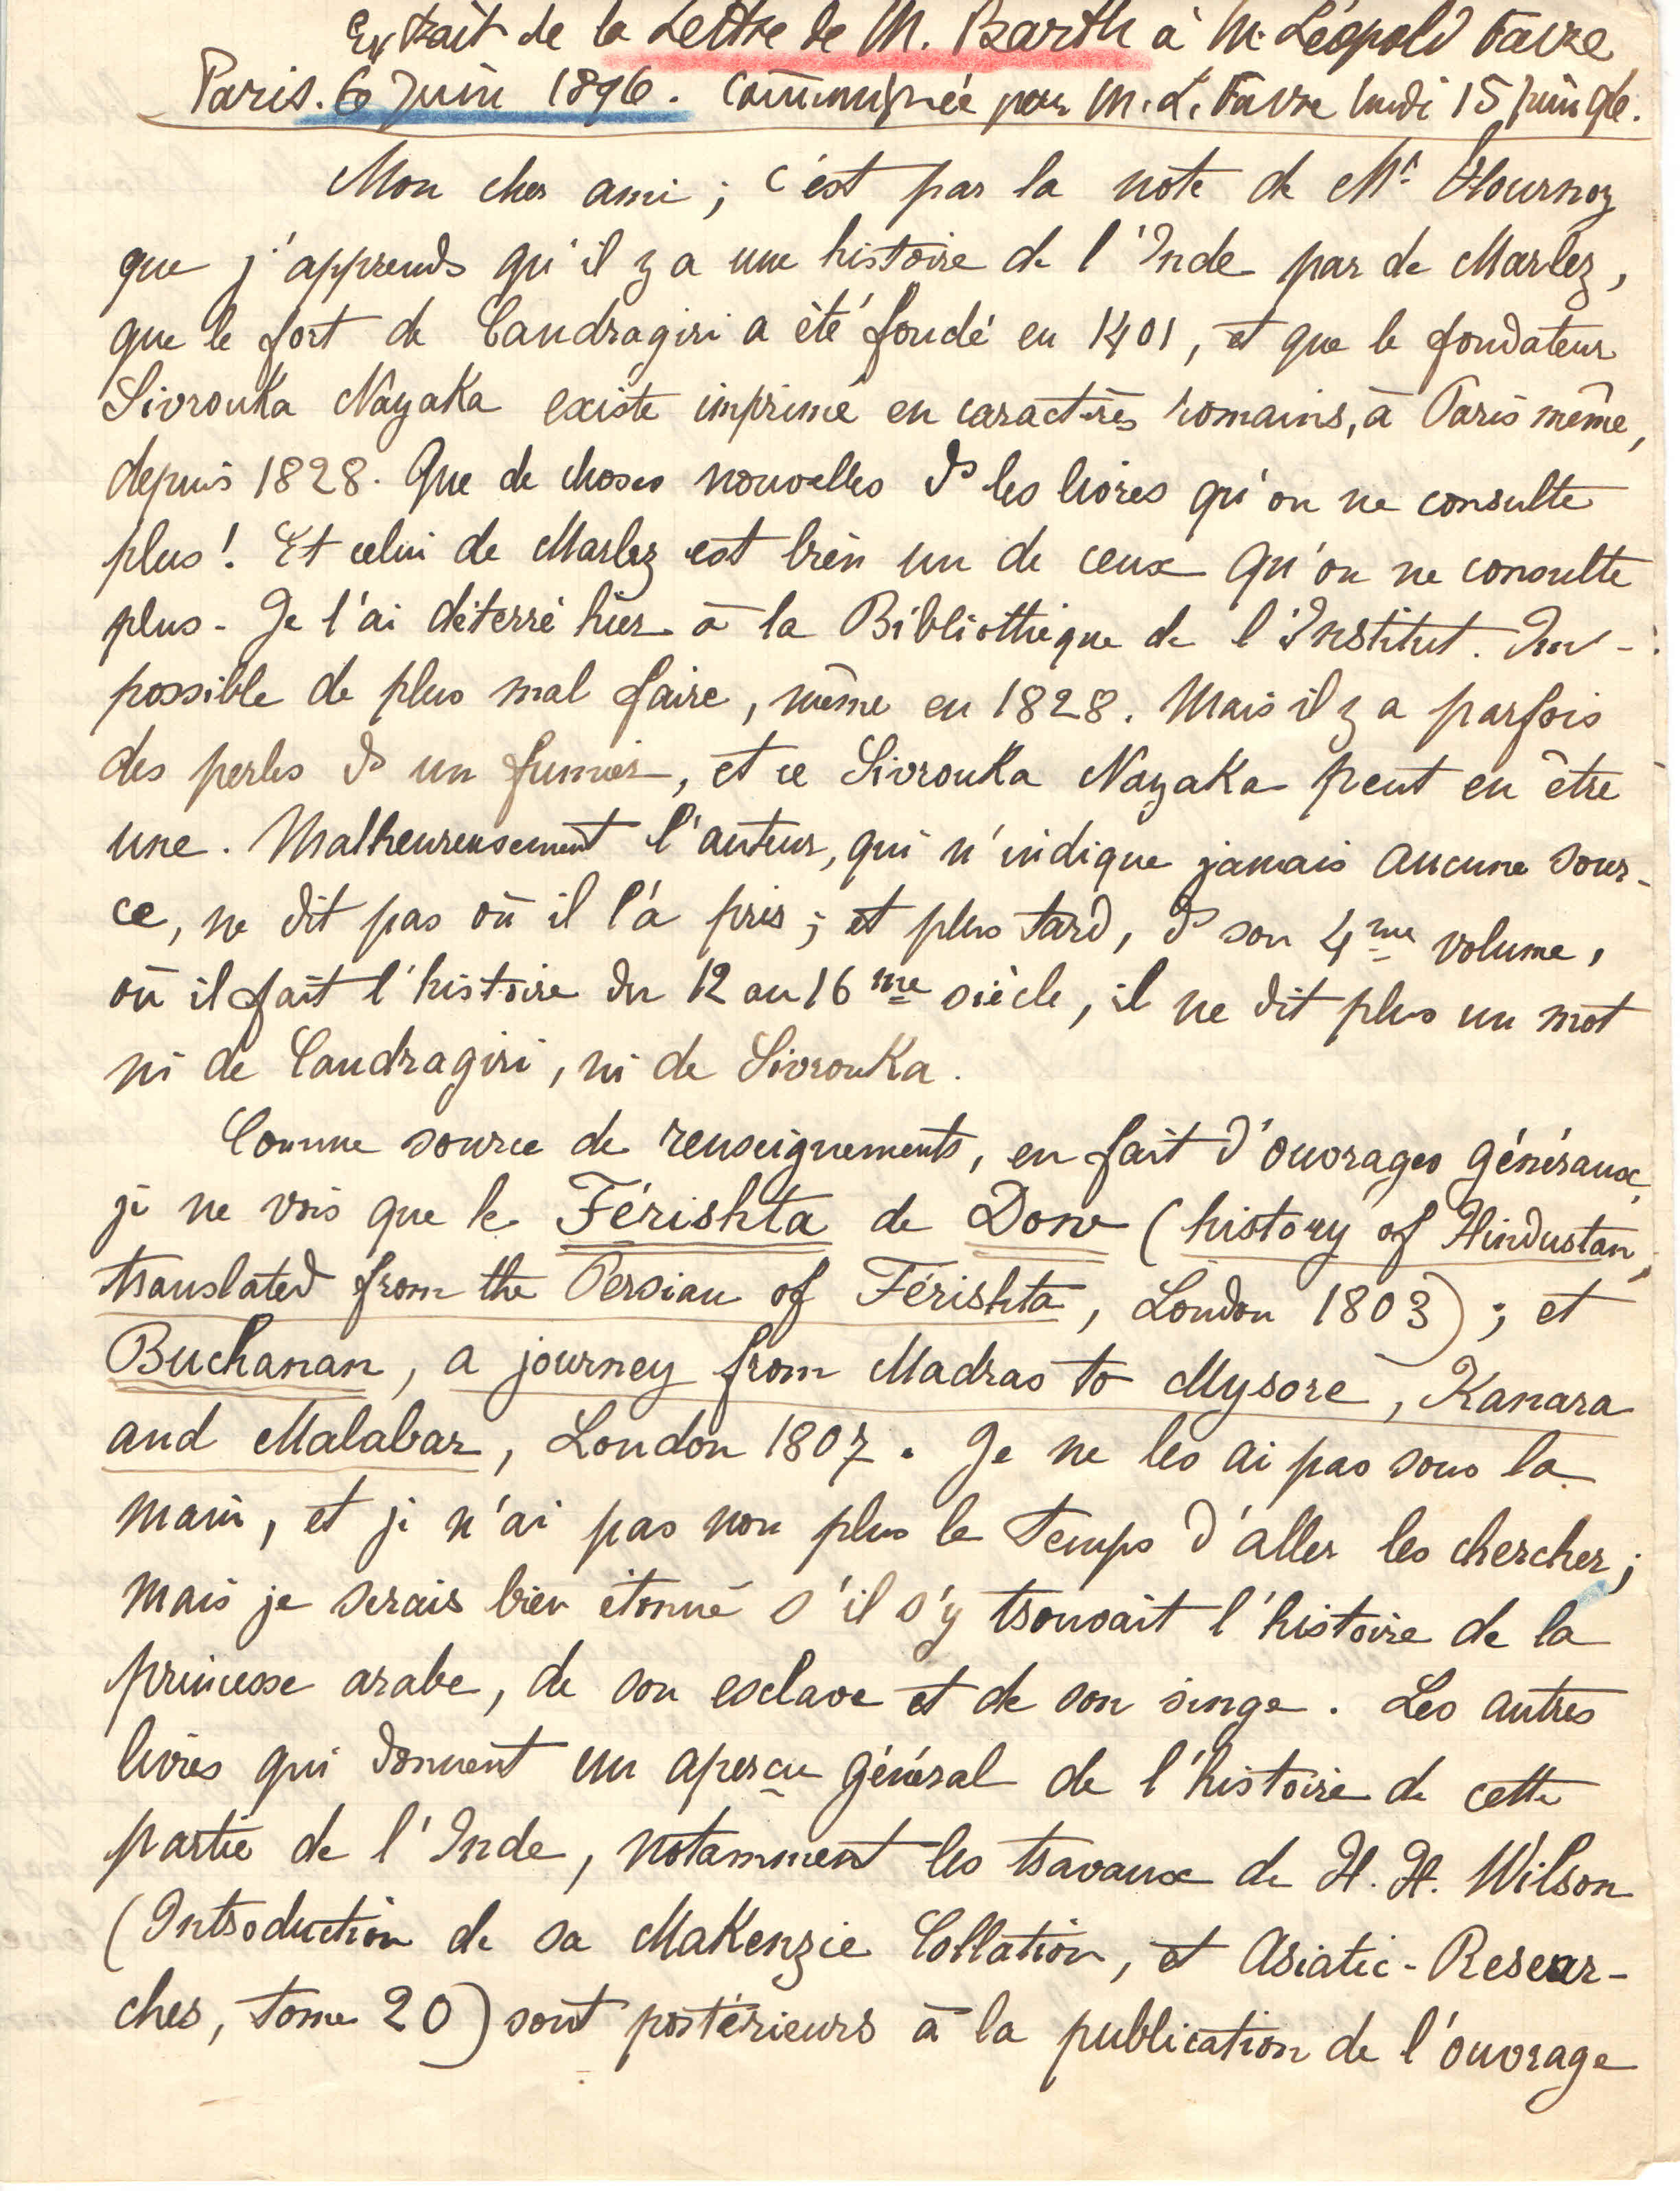 Extrait de la Lettre de M. Barth à M. Léopold Favre
Paris. 6 Juin 1896. communiquée par M. L. Favre lundi 15 juin 96.
Mon cher ami ; c'est par la note de Mr Flournoy
que j'apprends qu'il y a une histoire de l'Inde par de Marlez,
que le fort de Candragiri a été fondé en 1401, et que le fondateur
Sivrouka Nayaka existe imprimé en caractères romains, à Paris même,
depuis 1828. Que de choses nouvelles ds les livres qu'on ne consulte
plus ! Et celui de Marlez est bien un de ceux qu'on ne consulte
plus - Je l'ai déterré hier à la Bibliothèque de l'Institut. Im-
possible de plus mal faire, même en 1828. Mais il y a parfois
des perles ds un fumier, et ce Sivrouka Nayaka peut en être
une. Malheureusement l'auteur, qui n'indique jamais aucune sour-
ce, ne dit pas où il l'a pris ; et plus tard, ds son 4me volume,
où il fait l'histoire du 12 au 16me siècle, il ne dit plus un mot
ni de Candragiri, ni de Sivrouka.
Comme source de renseignements, en fait d'ouvrages généraux,
je ne vois que le Férishta de Dow (history of Hindustan,
translated from the Persian of Férishta, London 1803) ; et
Buchanan, a journey from Madras to Mysore, Kanara
and Malabar, London 1807. Je ne les ai pas sous la
main, et je n'ai pas non plus le temps d'aller les chercher ;
mais je serais bien étonné s'il s'y trouvait l'histoire de la
princesse arabe, de son esclave et de son singe. Les autres
livres qui donnent un aperçu général de l'histoire de cette
partie de l'Inde, notamment les travaux de H. H. Wilson
(Introduction de sa MaKenzie Collation, et Asiatic-Resear-
ches, tome 20) sont postérieurs à la publication de l'ouvrage